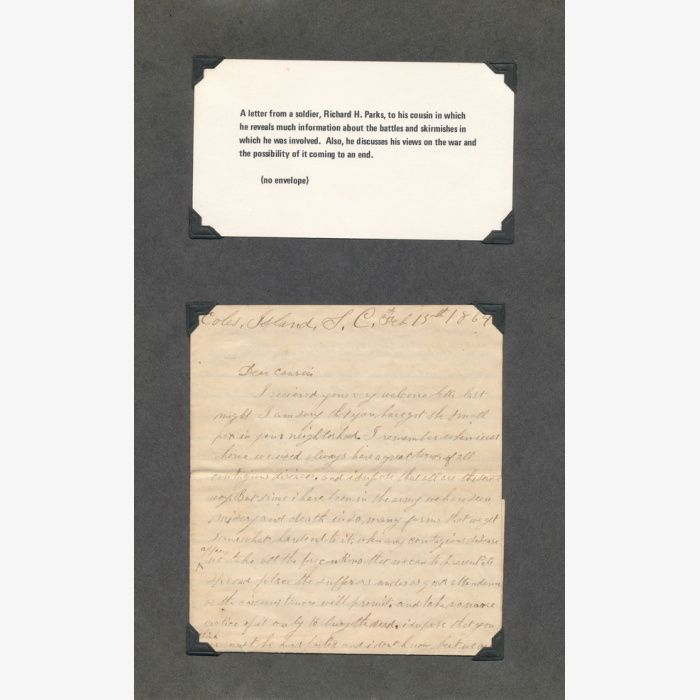 A letter from a soldier, Richard H. Parks, to his cousin in which
he reveals much information about the battles and skirmishes in
which he was involved. Also, he discusses his views on the war and
the possibility of it coming to an end.
(no envelope)
Coles, Island, S, C, Feb 15th 1864
Dear cousin
I received your very welcome letter last
night I am sorry that you have got the small
pox in your neighborhood. I remember when i was
home we used always have a great horror of all
contagious diseases. and i supose that all are the same
way But since i have been in the army we have seen
misery and death in so many forms that we get
somewhat hardend to it. when any contagious disease
appears
we take all the precautions that we can to prevent its
spread place the sufferers under as good attendance
as the circumstances will permit. and take no more
notice of it only to bury the dead. i supose that you
must be and i dont know but we